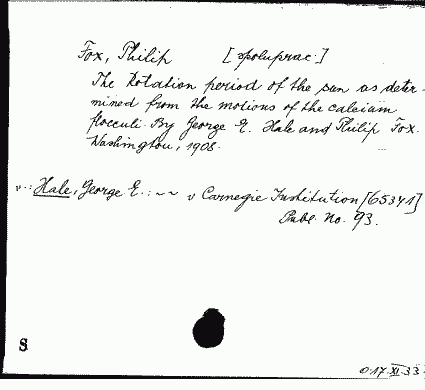 Fox, Philip [spoluprac.]
The Rotation period of the sun as deter-
mined from the motions of the calcium
flocculi. By George E. Hale and Philip Fox.
Washington, 1908.
v.: Hale, George E.: ~~ v Carnegie Institution [65341]
Publ. No. 93.
S
017.XI.33